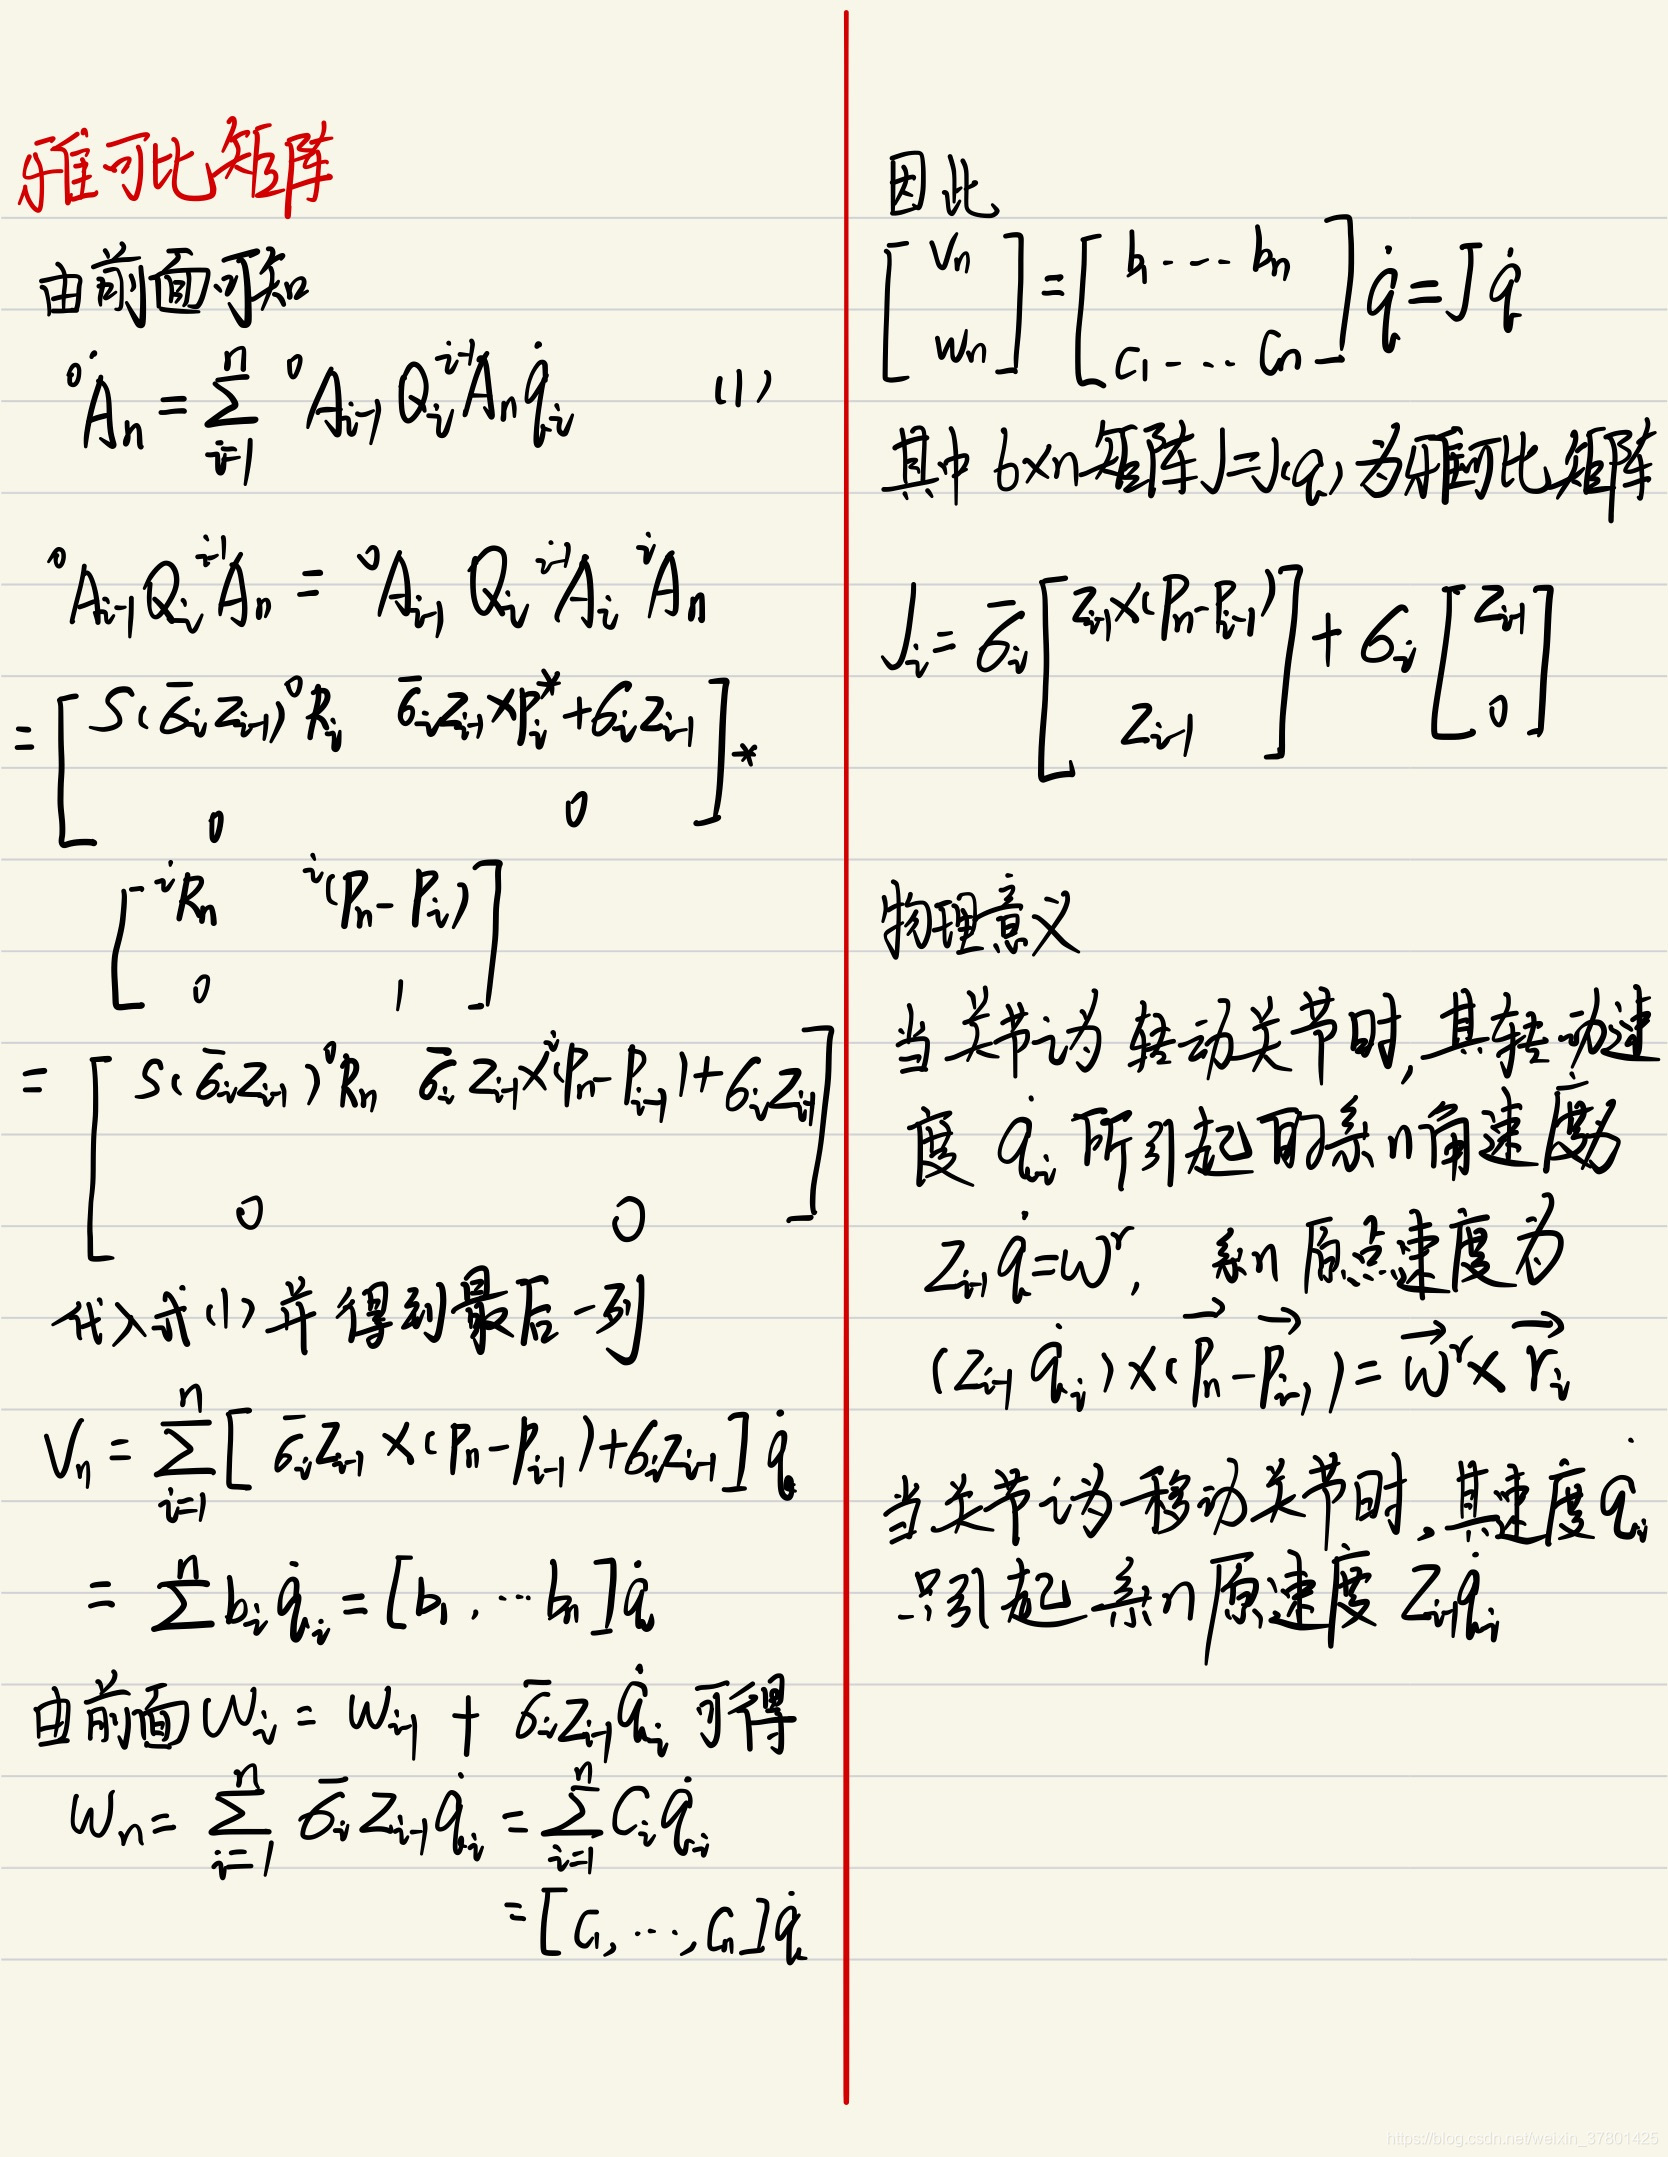 雅可比矩阵
由前面可知
⁰Ȧₙ = Σⁿᵢ₌₁ ⁰Aᵢ₋₁ Qᵢ ⁱ⁻¹Aₙ q̇ᵢ (1)
⁰Aᵢ₋₁ Qᵢ ⁱ⁻¹Aₙ = ⁰Aᵢ₋₁ Qᵢ ⁱ⁻¹Aᵢ ⁱAₙ
= [ S(σ̄ᵢ zᵢ₋₁) ⁰Rᵢ  σ̄ᵢ zᵢ₋₁ × pᵢ* + σᵢ zᵢ₋₁ ] *
0  0
[ ⁱRₙ  ⁱ(pₙ - pᵢ) ]
0  1
= [ S(σ̄ᵢ zᵢ₋₁) ⁰Rₙ  σ̄ᵢ zᵢ₋₁ × ⁱ(pₙ - pᵢ₋₁) + σᵢ zᵢ₋₁ ]
0  0
代入式(1)并得到最后一列
Vₙ = Σⁿᵢ₌₁ [ σ̄ᵢ zᵢ₋₁ × (pₙ - pᵢ₋₁) + σᵢ zᵢ₋₁ ] q̇
= Σⁿ bᵢ q̇ᵢ = [b₁, ⋯ bₙ] q̇
由前面 wᵢ = wᵢ₋₁ + σ̄ᵢ zᵢ₋₁ q̇ᵢ 可得
wₙ = Σⁿᵢ₌₁ σ̄ᵢ zᵢ₋₁ q̇ᵢ = Σⁿᵢ₌₁ cᵢ q̇ᵢ
= [c₁, ⋯, cₙ] q̇
因此
[ vₙ ] = [ b₁ ⋯ bₙ ] q̇ = J q̇
[ wₙ ] [ c₁ ⋯ cₙ ]
其中 6×n 矩阵 J=J(q) 为雅可比矩阵
Jᵢ = σ̄ᵢ [ zᵢ₋₁×(pₙ-pᵢ₋₁) ] + σᵢ [ zᵢ₋₁ ]
zᵢ₋₁  0
物理意义
当关节i为转动关节时,其转动速
度 q̇ᵢ 所引起的系n角速度为
zᵢ₋₁ q̇ = wʳ, 系n原点速度为
(zᵢ₋₁ q̇ᵢ) × (p⃗ₙ - p⃗ᵢ₋₁) = w⃗ʳ × r⃗ᵢ
当关节i为移动关节时,其速度 q̇ᵢ
只引起系n原速度 zᵢ₋₁ q̇ᵢ
https://blog.csdn.net/weixin_37801425